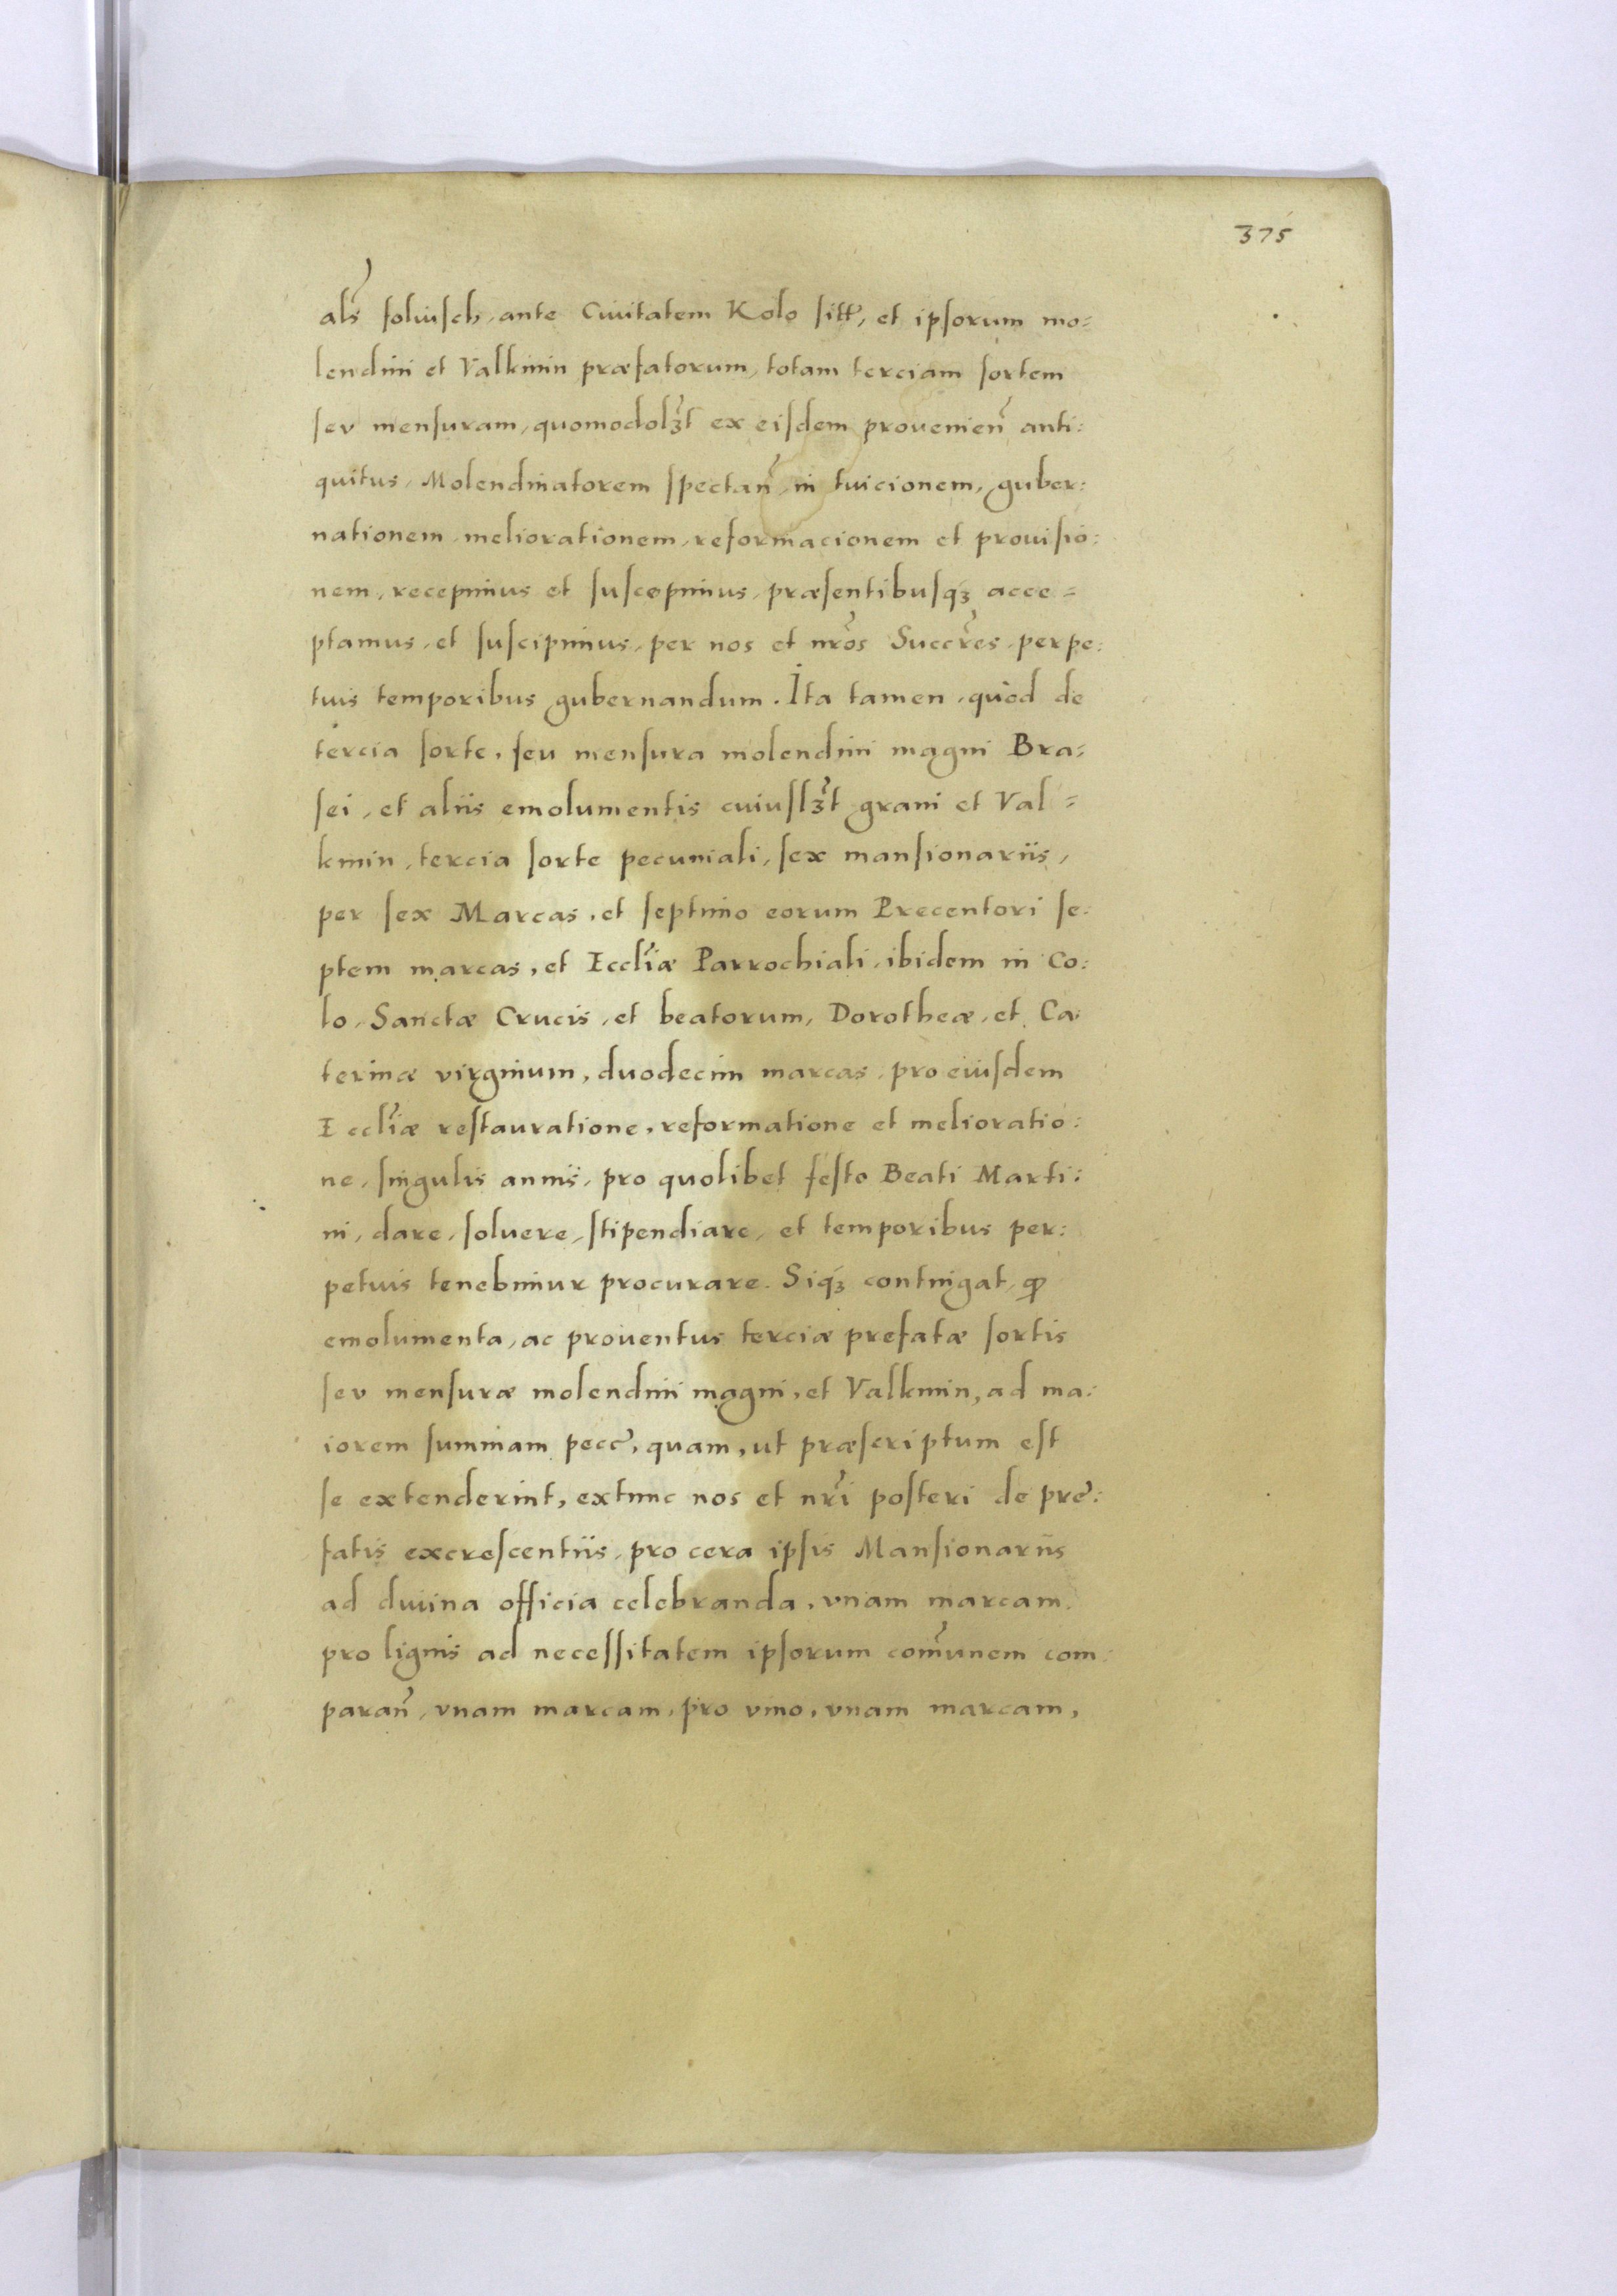 375
als̃ foluſch, ante Ciuitatem Kolo ſitt̃, et ipſorum mo=
lendini et Valkmin præfatorum, totam terciam ſortem
ſev menſuram, quomodolꝫt ex eiſdem provenien̄ anti:
quitus, Molendinatorem ſpectan̄, in tuicionem, guber:
nationem, meliorationem, reformacionem et prouiſio:
nem, recepimus et ſuſcepimus, præſentibuſqꝫ acce=
ptamus, et ſuſcipimus, per nos et nr̃os Succr̃es, perpe:
tuis temporibus gubernandum. Ita tamen, quod de
tercia ſorte, ſeu menſura molendini magni Bra=
ſei, et aliis emolumentis cuiuſlꝫt grani et Val=
kmin, tercia ſorte pecuniali, ſex manſionariis,
per ſex Marcas, et ſeptimo eorum Precentori ſe:
ptem marcas, et Eccl̃iæ Parrochiali, ibidem in Co:
lo, Sanctæ Crucis, et beatorum, Dorotheæ, et Ca:
terinæ virginum, duodecim marcas, pro eiuſdem
Eccl̃iæ reſtauratione, reformatione et melioratio:
ne, ſingulis annis, pro quolibet feſto Beati Marti:
ni, dare, ſoluere, ſtipendiare, et temporibus per:
petuis tenebimur procurare. Siqꝫ contingat, ꝙ
emolumenta, ac proventus terciæ prefatæ ſortis
ſev menſuræ molendini magni, et Valkmin, ad ma:
iorem ſummam pecc̃, quam, ut præſcriptum eſt
ſe extenderint, extunc nos et nr̃i poſteri de pre:
fatis excreſcentiis, pro cera ipſis Manſionariis
ad diuina officia celebranda, vnam marcam,
pro lignis ad neceſſitatem ipſorum com̃unem com:
paran̄, vnam marcam, pro vino, vnam marcam,